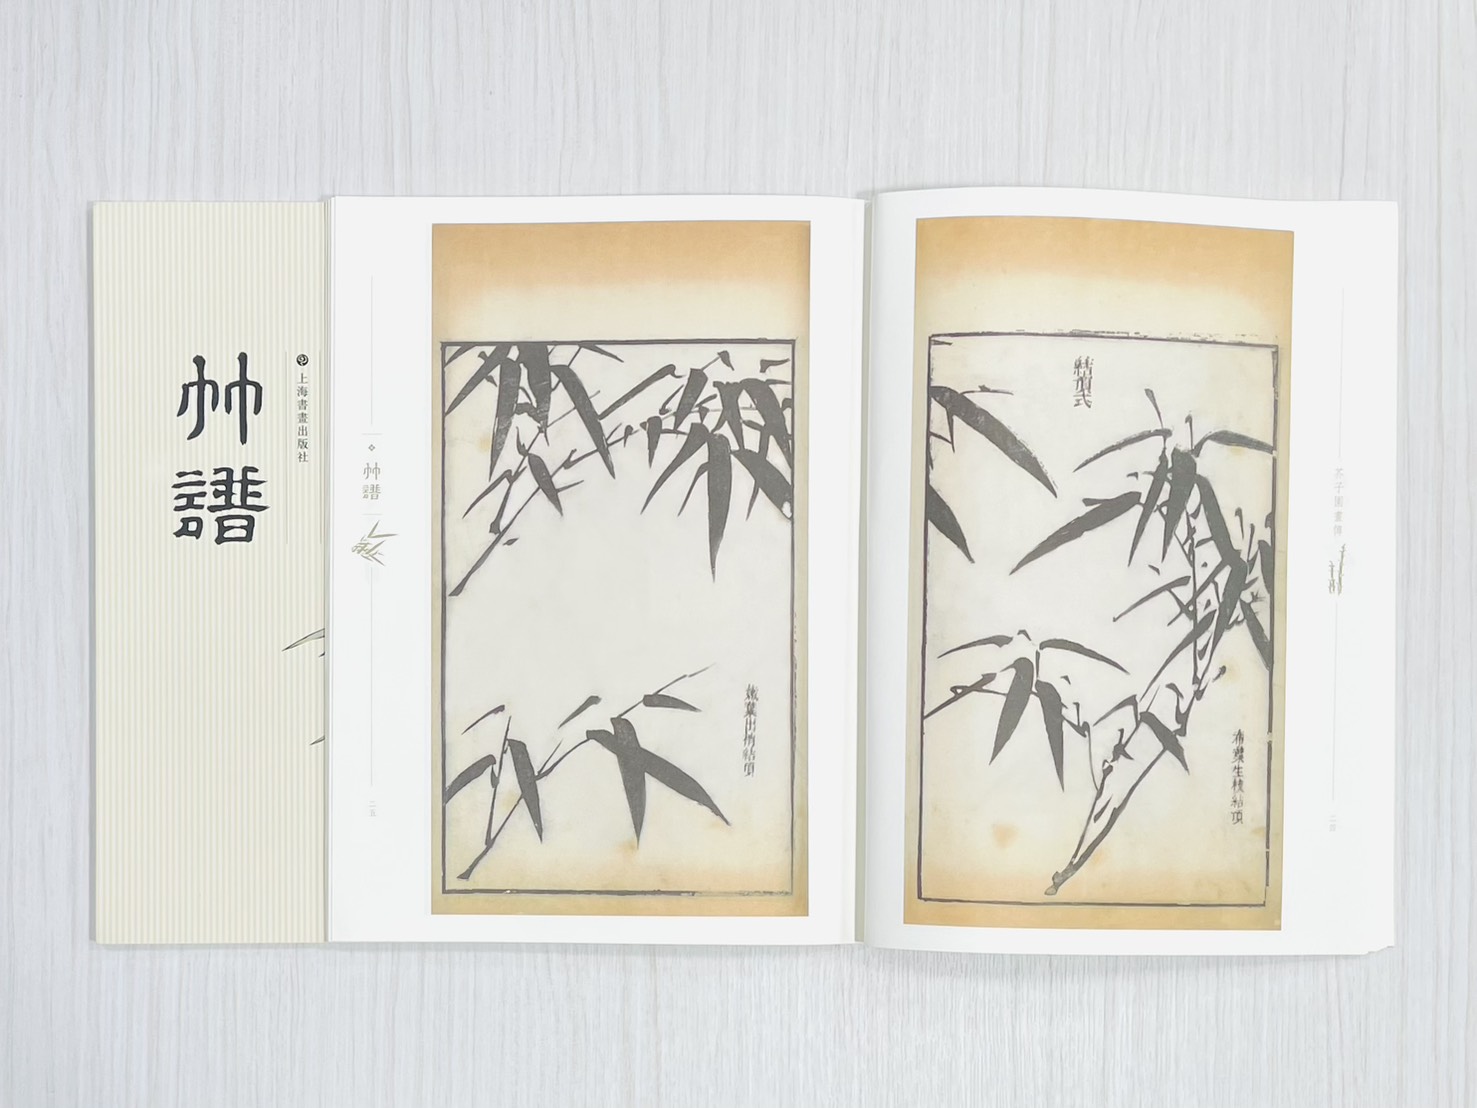 竹譜
上海書畫出版社
竹譜
二五
嫩葉出梢結頂
結頂式
布葉生枝結頂
芥子園畫傳